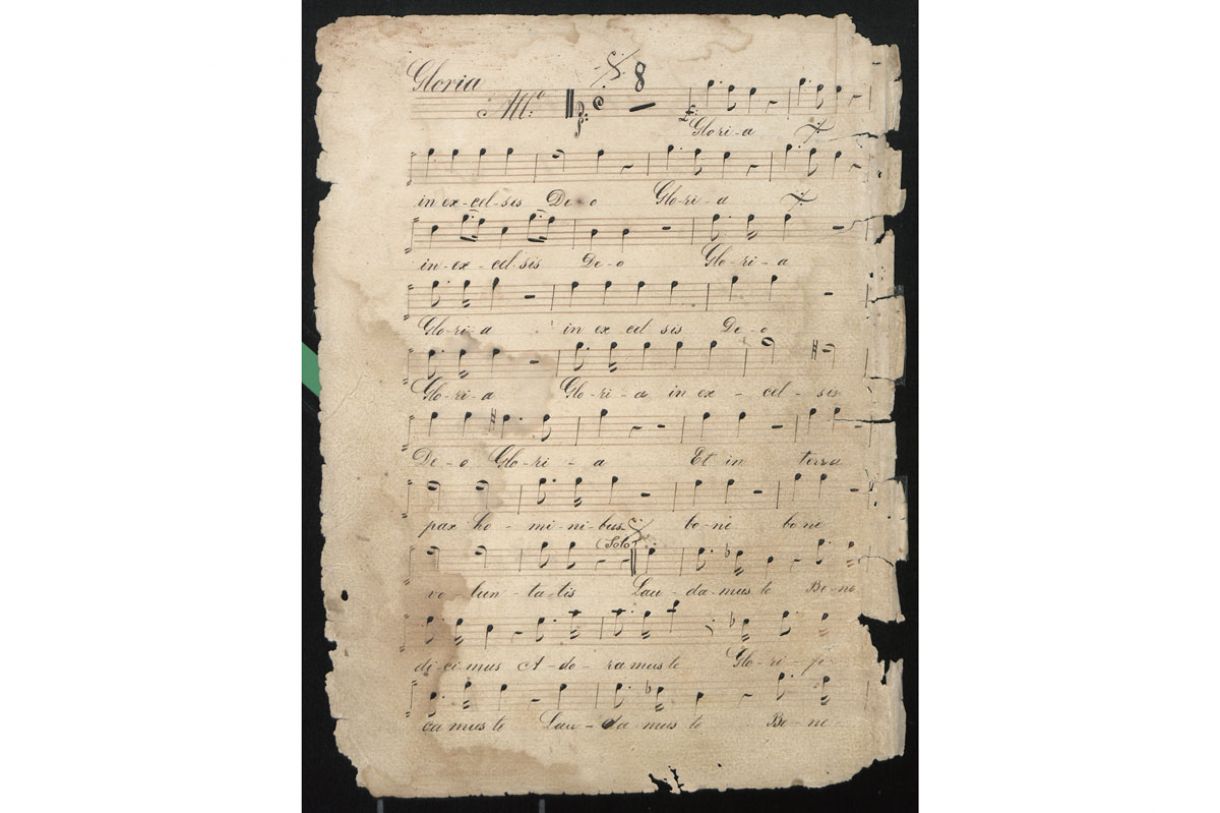 Gloria
Mº: 8
Glori-a
in ex-cel-sis De-o Glo-ri-a
in-ex-cel-sis De-o Glo-ri-a
Glo-ri-a in ex cel sis De-o
Glo-ri-a Glo-ri-a in ex-cel-sis
De-o Glo-ri-a Et in terra
pax ho-mi-ni-bus bo-ne bo ne
(Solo)
vo lun-ta-tis Lau-da-mus te Be-ne
di-ci mus A-do-ra mus te Glo-ri-fi-
ca mus te Lau-da mus te Be-ne-